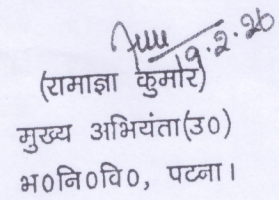 9.2.26
(रामाज्ञा कुमार)
मुख्य अभियंता(उ०)
भ०नि०वि०, पटना।